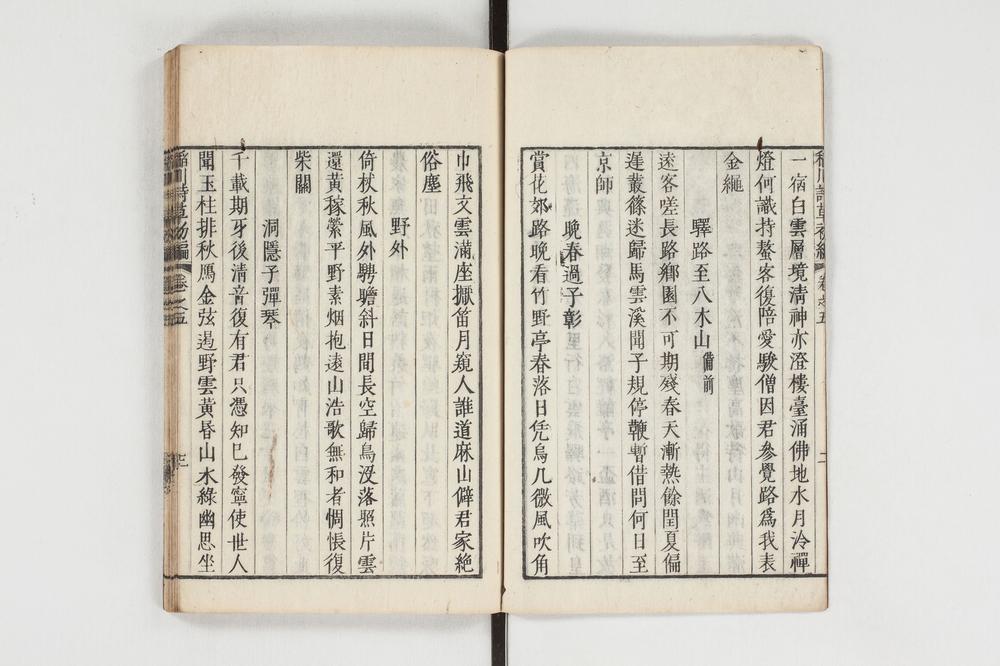 稻川詩草初編 卷之五
一宿白雲層境淸神亦澄樓臺涌佛地水月泠禪
燈何識持螯客復陪愛駿僧因君參覺路爲我表
金繩
驛路至八水山備前
遠客嗟長路鄕園不可期殘春天漸熱餘閏夏偏
遲叢篠迷歸馬雲溪聞子規停鞭暫借問何日至
京師
晚春過子彰
賞花郊路晚看竹野亭春落日凭烏几微風吹角
巾飛文雲滿座擫笛月窺人誰道麻山僻君家絶
俗塵
野外
倚杖秋風外騁瞻斜日間長空歸鳥沒落照片雲
還黃稼縈平野素烟抱遠山浩歌無和者惆悵復
柴關
洞隱子彈琴
千載期牙後淸音復有君只憑知已發寧使世人
聞玉柱排秋鴈金弦遏野雲黃昏山水綠幽思坐
稻川詩草初編 卷之五